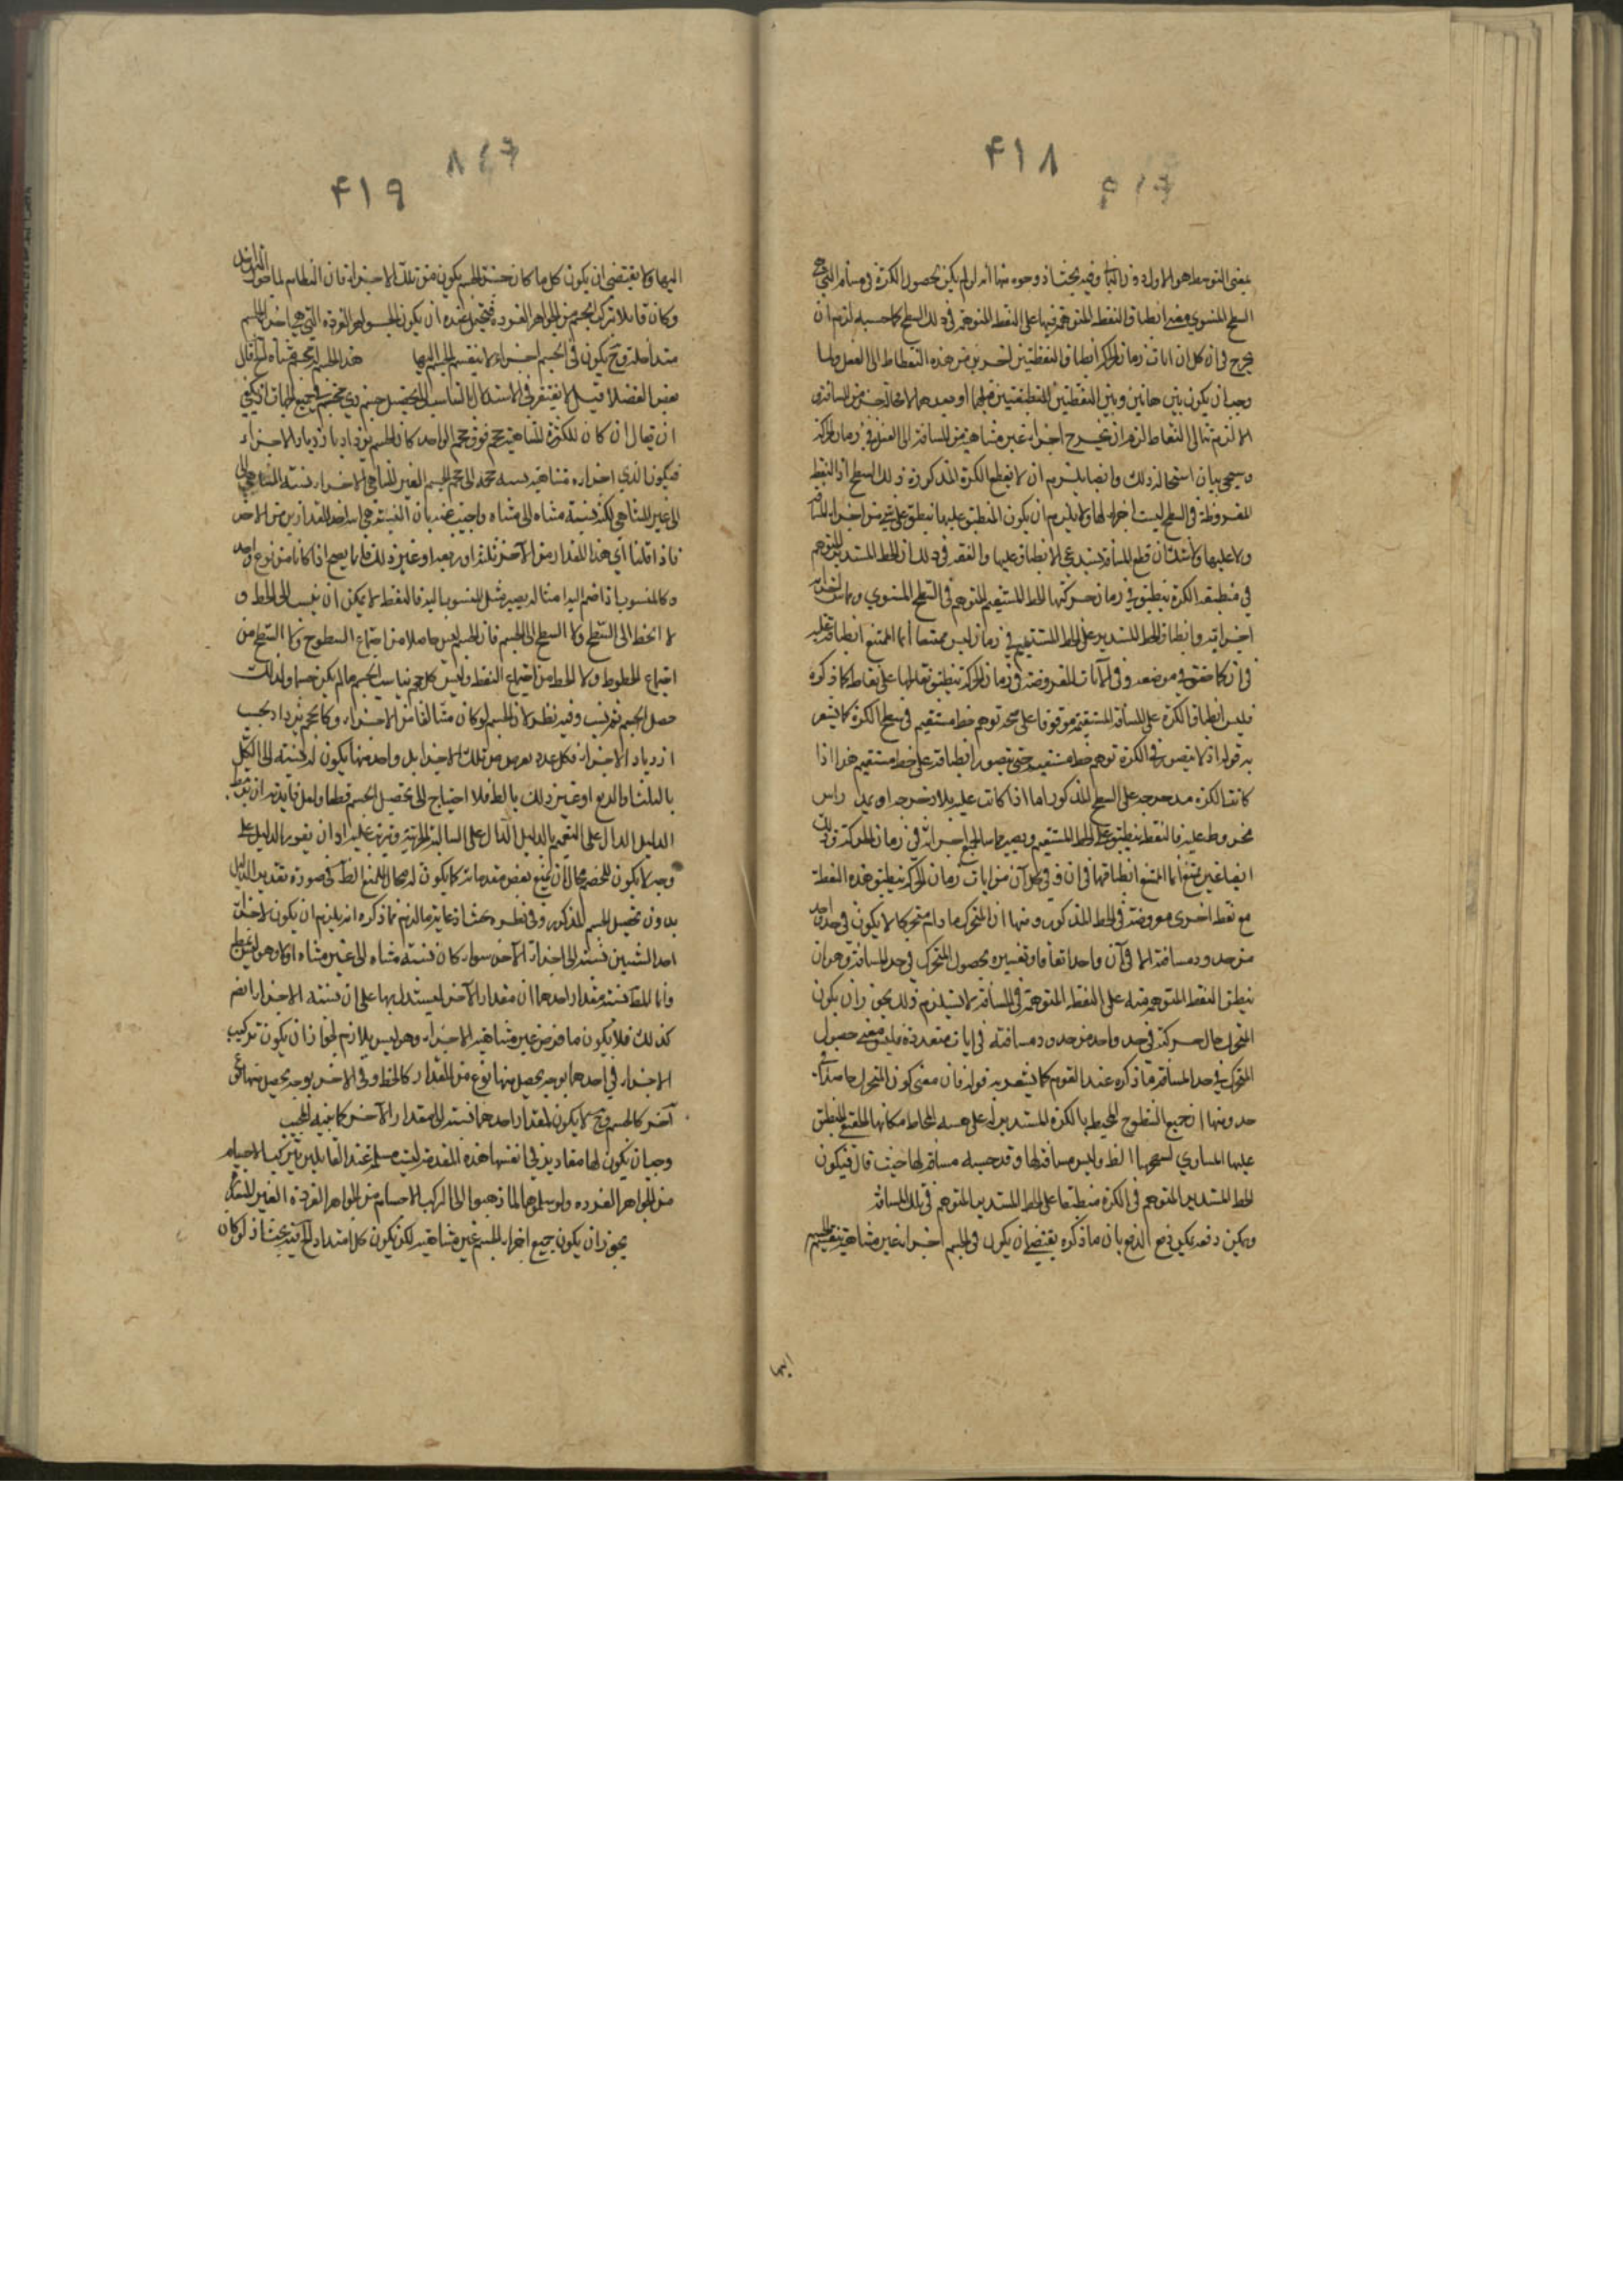 ۴۱۸
بمعنى التوسط هو الاول دون الثاني وفيه بحث اذ وجوه منها انه لو لم يكن بحصول الكرة في مسافة التي هي
السطح المستوي معنى انطباق النقط المتوهمة فيها على النقط المتوهمة في ذلك السطح كما حسبه لزم ان
يخرج في ان كل ان انات زمان الحركة انطباق النقطتين اخريين من هذه النقطاط الى الفعل ولما
وجب ان يكون بين هاتين وبين النقطتين المنطبقتين قبلهما او بعدهما لا محالة جزء من المسافة
الا لزم تتالي النقاط لزم ان يخرج اجزاء غير متناهية من المسافة الى الفعل في زمان الحركة
وسيجيء بيان استحالة ذلك وايضا يلزم ان لا يقطع الكرة المذكورة ذلك السطح اذ النقط
المفروضة في السطح ليست اجزاء لها ولا يلزم ان يكون المنطبق عليها منطبق على شيء من اجزاء المسافة
ولا عليها ولا شك ان قطع المسافة يستدعي الانطباق عليها والفقه في ذلك ان الخط المستدير المتوهم
في منطقة الكرة ينطبق في زمان حركتها الخط المستقيم المتوهم في السطح المستوي ويماس
اجزائه وانطباق الخط المستدير على الخط المستقيم في زمان ليس ممتنعا انما الممتنع انطباقه عليه
في ان كما حقق في موضعه وفي الآنات المفروضة في زمان الحركة ينطبق نقطها على نقاط كما ذكره
فليس انطباق الكرة على المسافة المستقيمة موقوفا على صحة توهم خط مستقيم في سطح الكرة كما يشعر
به قوله اذ لا يتصور في الكرة توهم خط مستقيم حتى يتصور انطباقه على خط مستقيم هذا اذا
كانت الكرة مدحرجة على السطح المذكور اما اذا كانت عليه بلا دحرجة او يمر راس
مخروط عليه فالنقطة ينطبق على الخط المستقيم ويصير مماسا لجميع اجزائه في زمان الحركة وذلك
ايضا غير ممتنع انما الممتنع انطباقها في ان وفي كل آن من انات زمان الحركة ينطبق هذه النقطة
مع نقطة اخرى مفروضة في الخط المذكور ومنها ان المتحرك ما دام متحركا لا يكون في حد واحد
من حدود مسافته الا في آن واحد اتفاقا وتفسيره بحصول المتحرك في حد المسافة وهو ان
ينطبق النقط المتوهمة منه على النقط المتوهمة في المسافة لا يستلزم ذلك يجوز ان يكون
المتحرك حال حركته في حد واحد من حدود مسافته في انات متعددة فليس معنى حصول
المتحرك في حد المسافة ما ذكره عند القوم كما يشعر به قوله فان معنى كون المتحرك حاصلا في
حد ومنها ان جميع السطوح المحيط بالكرة المستديرة على هيئة المحاط مكانها الملتقى المنطبق
عليها المساوي لسطحها الظ وليس مسافة لها وقد حسبه مسافة لها حيث قال فيكون
الخط المستدير المتوهم في الكرة منطبقا على الخط المستدير المتوهم في تلك المسافة
ويمكن دفعه يكن دفع الدفع بان ما ذكره يقتضي ان يكون في الجسم اجزاء غير متناهية ينقسم الجسم
اليها
۴۱۹
اليها ولا يقتضي ان يكون كل ما كان جزء الجسم يكون من تلك الاجزاء فان النظام لما
وكان قائلا بتركب الجسم من الجواهر الفردة فيحتمل عنده ان يكون الجواهر الفردة التي هي اجزاء الجسم
متداخلة وح يكون في الجسم اجزاء لا ينقسم الجسم اليها هذا الجسم له حجم متناه لخ قال
بعض الفضلا قيل لا يفتقر في الاستدلال بالتناسب الى تحصيل جسم ذي حجم في جميع الجهات اذ يكفي
ان يقال ان كان للكثرة المتناهية حجم فوق حجم الواحد كان الجسم يزداد بازدياد الاجزاء
فيكون الذي اجزاؤه متناهية نسبة حجمه الى حجم الجسم الغير المتناهي الاجزاء نسبة المتناهي
الى غير المتناهي لكنه نسبة متناه الى متناه واجيب عنه بان النسبة هي اية احد المقدارين من الاخر
فاذا قلنا اي هذا المقدار من الآخر ثلثه او ربعه او غير ذلك فانما يصح اذا كانا من نوع واحد
وكالمنسوب اذا ضم اليه امثاله يصير مثل المنسوب اليه فالنقط لا يمكن ان ينسب الى الخط و
لا الخط الى السطح ولا السطح الى الجسم فان الجسم ليس حاصلا من اجتماع السطوح ولا السطح من
اجتماع الخطوط ولا الخط من اجتماع النقط وليس كل حجم يناسب الجسم ما لم يكن جسما ولذلك
حصل الجسم ثم نسب وفيه نظر لان الجسم لو كان متالفا من الاجزاء وكان حجم يزداد بحسب
ازدياد الاجزاء فكل عدد يعرض من تلك الاجزاء بل واحد منها يكون له نسبة الى الكل
بالثلث او الربع او غير ذلك بالظ فلا احتياج الى تحصيل الجسم قطعا ولعل فايدته ان
الدليل الدال على التعميم بالدليل الدال على السالبة الجزئية وترتب عليه اراد ان يقرر الدليل على
وجه لا يكون للخصم مجال ان يمنع بعض مقدماته كما يكون له مجال المنع الظ في صورة تقدير الدليل
بدون تحصيل الجسم المذكور وفي نظره بحث اذ غاية ما لزم مما ذكره انه يلزم ان يكون لاجزاء
احد الشيئين نسبة الى اجزاء الآخر سواء كان نسبة متناه الى غير متناه او لا وهو
وانما المط نسبة مقدار احدهما الى مقدار الآخر ليستدل بها على ان نسبة الاجزاء ايضم
كذلك فلا يكون ما فرض غير متناهية الاجزاء وهو ليس بلازم لجواز ان يكون تركيب
الاجزاء في احدهما بوجه يحصل منها نوع من المقدار كالخط وفي الاخر بوجه يحصل منها نوع
آخر كالجسم وح لا يكون لمقدار احدهما نسبة الى مقدار الآخر كما بينه المجيب
وجب ان يكون لها مقادير في انفسها هذه المقدمة ليست مسلمة عند القايلين بتركيب الاجسام
من الجواهر الفرده ولو سلموها لما ذهبوا الى تركيب الاجسام من الجواهر الفردة الغير المتناهية
يجوز ان يكون جميع اجزاء الجسم غير متناهية لكن يكون كل امتداد لخ فيه بحث اذ لو كان